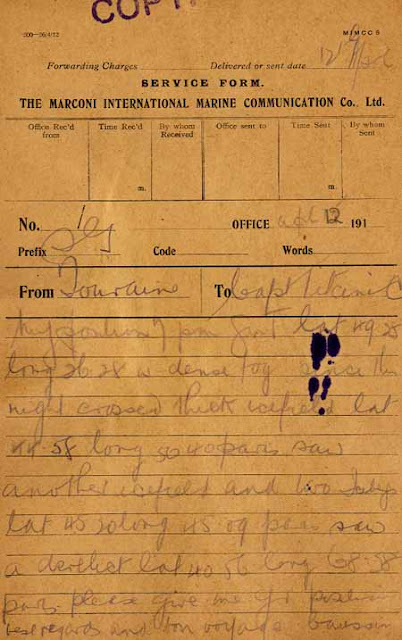 COPY
200—26/4/12 MIMCC 5
12 April
Forwarding Charges Delivered or sent date
SERVICE FORM.
THE MARCONI INTERNATIONAL MARINE COMMUNICATION Co., Ltd.
Office Rec'd from Time Rec'd By whom Received Office sent to Time Sent By whom Sent
m. m.
No. 1 OFFICE apl 12 191
Prefix Code Words
From Touraine To Capt Titanic
My position 7 pm Gmt lat 49.28
long 26.28 w dense fog since this
night crossed thick icefield lat
44.58 long 50.40 paris saw
another icefield and two icebgs
lat 45.20 long 45.09 paris saw
a derelict lat 40.56 long 68.38
paris please give me yr position
best regards and bon voyage Caussin